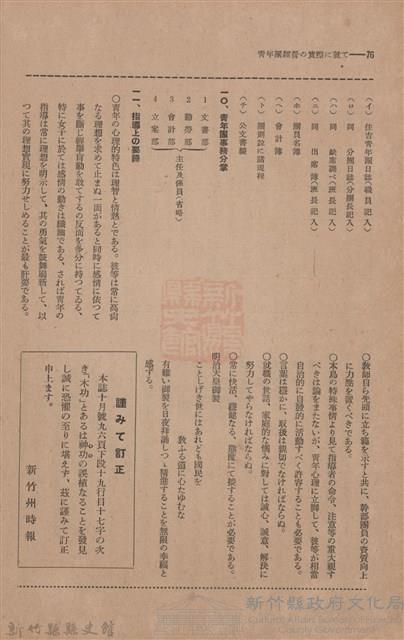 青年團經營の實際に就て——76
(イ) 住吉青年團日誌(職員記入)
(ロ) 同 分團日誌(分團長記入)
(ハ) 同 缺席調べ(班長記入)
(ニ) 同 出席簿(班長記入)
(ホ) 團員名簿
(ヘ) 會計簿
(ト) 團則並に諸規程
(チ) 公文書綴
一〇、青年團事務分掌
1 文書部
2 勤勞部
3 會計部
4 立案部
主任及係員(省略)
一一、指導上の要諦
○青年の心理的特色は理智と情熱とである。彼等は常に高尙
なる理想を求めて止まぬ一面があると同時に感情に依つて
事を斷じ輕擧盲動を敢てするの反面を多分に持つてゐる、
特に女子に於ては感情の動きは纖細である、されば靑年の
指導は常に理想を明示して、其の勇氣を鼓舞勵振して、以
つて其の理想實現に努力せしめることが最も肝要である。
○敎師自ら先頭に立ち範を示すと共に、幹部團員の資質向上
に力點を置くべきである。
○本島の特殊事情より見て指導者の命令、注意等の重大視す
べきは論をまたないが、靑年心理に立脚して、彼等が相當
自治的に自發的に活動すべく許容することも必要である。
○言葉は穩かに、取扱は親切でなければならぬ。
○就職の世話、家庭的な惱みに對しては誠心、誠意、解決に
努力してやらなければならぬ。
○常に快活、穩健なる、態度にて接することが必要である。
明治天皇御製
ことしげき世にはあれども國民を
敎ふる道に心たゆむな
有難い御製を日夜拜誦しつゝ精進することを無限の幸福と
感ずる。
謹みて訂正
本誌十月號九六頁下段十九行目十七字の次
き「木功」とあるは神功の誤植なることを發見
し誠に恐懼の至りに堪えず、茲に謹みて訂正
申上ます。
新竹州時報
新竹縣縣史館
新竹縣政府文化局
Cultural Affairs Bureau of Hsinchu
County Government
新竹縣縣史館